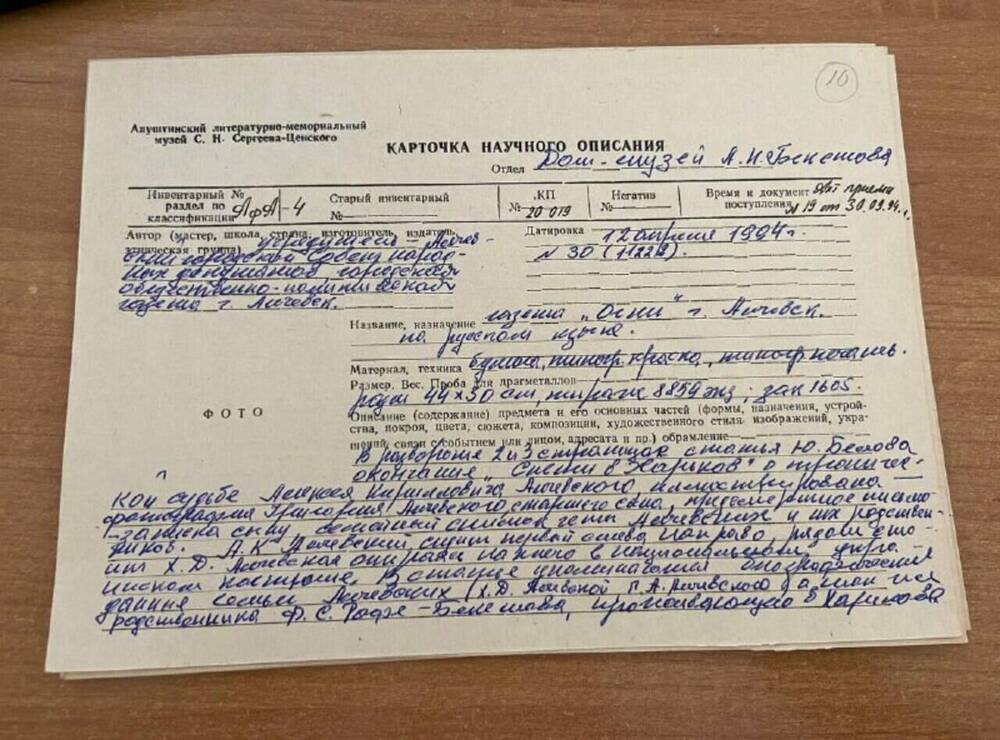 10
Алуштинский литературно-мемориальный
музей С. Н. Сергеева-Ценского
КАРТОЧКА НАУЧНОГО ОПИСАНИЯ
Отдел Дом-музей А.Н.Бекетова
Инвентарный №
раздел по
классификации АфА-4
Старый инвентарный
№
КП
№ 20 019
Негатив
№
Время и документ Акт приема
поступления № 19 от 30.09.94 г.
Автор (мастер, школа, страна, изготовитель, издатель,
этническая группа) учредитель – Алчев-
ский городской Совет народ-
ных депутатов, городская
общественно-политическая
газета г. Алчевск.
Датировка 12 апреля 1994 г.
N 30 (11222).
Название, назначение газета „Огни" г. Алчевск.
на русском языке.
Материал, техника бумага, типогр. краска, типогр. печать.
Размер. Вес. Проба для драгметаллов
разм 44×30 см, тираж 8859 экз; зак 1605.
ФОТО
Описание (содержание) предмета и его основных частей (формы, назначения, устрой-
ства, покроя, цвета, сюжета, композиции, художественного стиля изображений, укра-
шений, связи с событием или лицом, адресата и пр.) обрамление
В развороте 2 и 3 страницах статья Ю. Белова
окончание „Степи в Харьков" о трагичес-
кой судьбе Алексея Кирилловича Алчевского иллюстрирована
фотографией Григория Алчевского старшего сына, предсмертное письмо
-записка сыну семейный снимок четы Алчевских и их родствен-
ников. А.К. Алчевский сидит первый слева направо, рядом сто-
ит Х.Д. Алчевская опираясь на него в национальном укра-
инском костюме. В статье упоминаются
данные семьи Алчевских (Х.Д. Алчевской Г.А. Алчевского а также
родственника Ф.С. Рофе-Бекетова, проживающую в Харькове